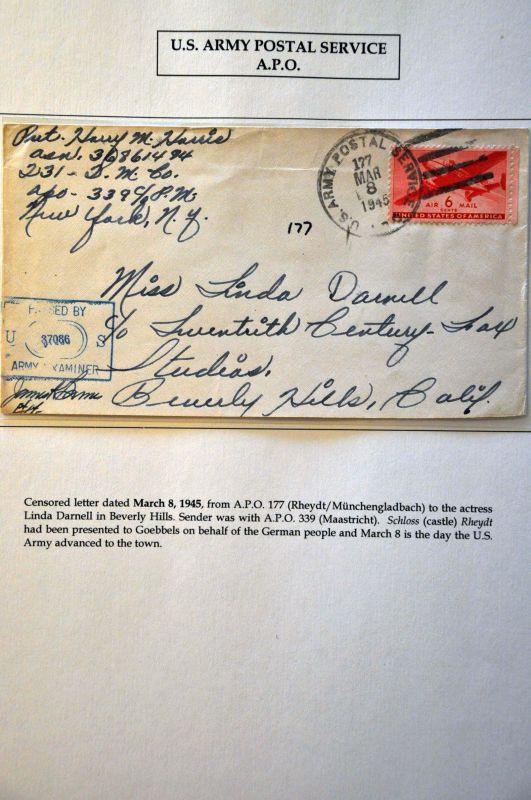 U.S. ARMY POSTAL SERVICE
A.P.O.
Pvt. Harry M. Harris
asn. 36861494
231 - D. M. Co.
apo - 339 c/o P.M.
New York, N.Y.
U.S. ARMY POSTAL SERVICE
177
MAR
8
1945
AIR 6 MAIL
CENTS
UNITED STATES OF AMERICA
177
Miss Linda Darnell
c/o Twentieth Century-Fox
Studios,
Beverly Hills, Calif.
PASSED BY
U 37086 S
ARMY EXAMINER
Censored letter dated March 8, 1945, from A.P.O. 177 (Rheydt/Münchengladbach) to the actress
Linda Darnell in Beverly Hills. Sender was with A.P.O. 339 (Maastricht). Schloss (castle) Rheydt
had been presented to Goebbels on behalf of the German people and March 8 is the day the U.S.
Army advanced to the town.